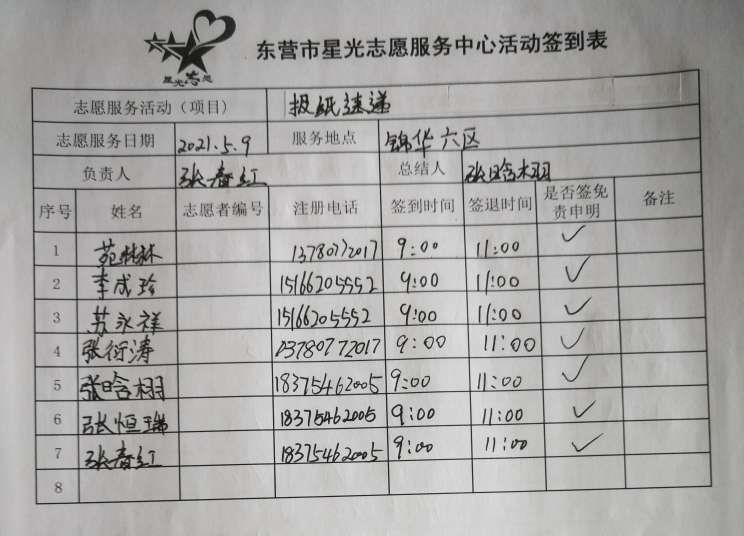 星光志愿
东营市星光志愿服务中心活动签到表
志愿服务活动（项目） 报纸速递
志愿服务日期 2021.5.9 服务地点 锦华六区
负责人 张春红 总结人 张晗栩
序号 姓名 志愿者编号 注册电话 签到时间 签退时间 是否签免责申明 备注
1 苑 林 13780772017 9:00 11:00 ✓
2 李成玲 15166205552 9:00 11:00 ✓
3 苏永祥 15166205552 9:00 11:00 ✓
4 张衍涛 13780772017 9:00 11:00 ✓
5 张晗栩 18375462005 9:00 11:00 ✓
6 张恒瑞 18375462005 9:00 11:00 ✓
7 张春红 18375462005 9:00 11:00 ✓
8